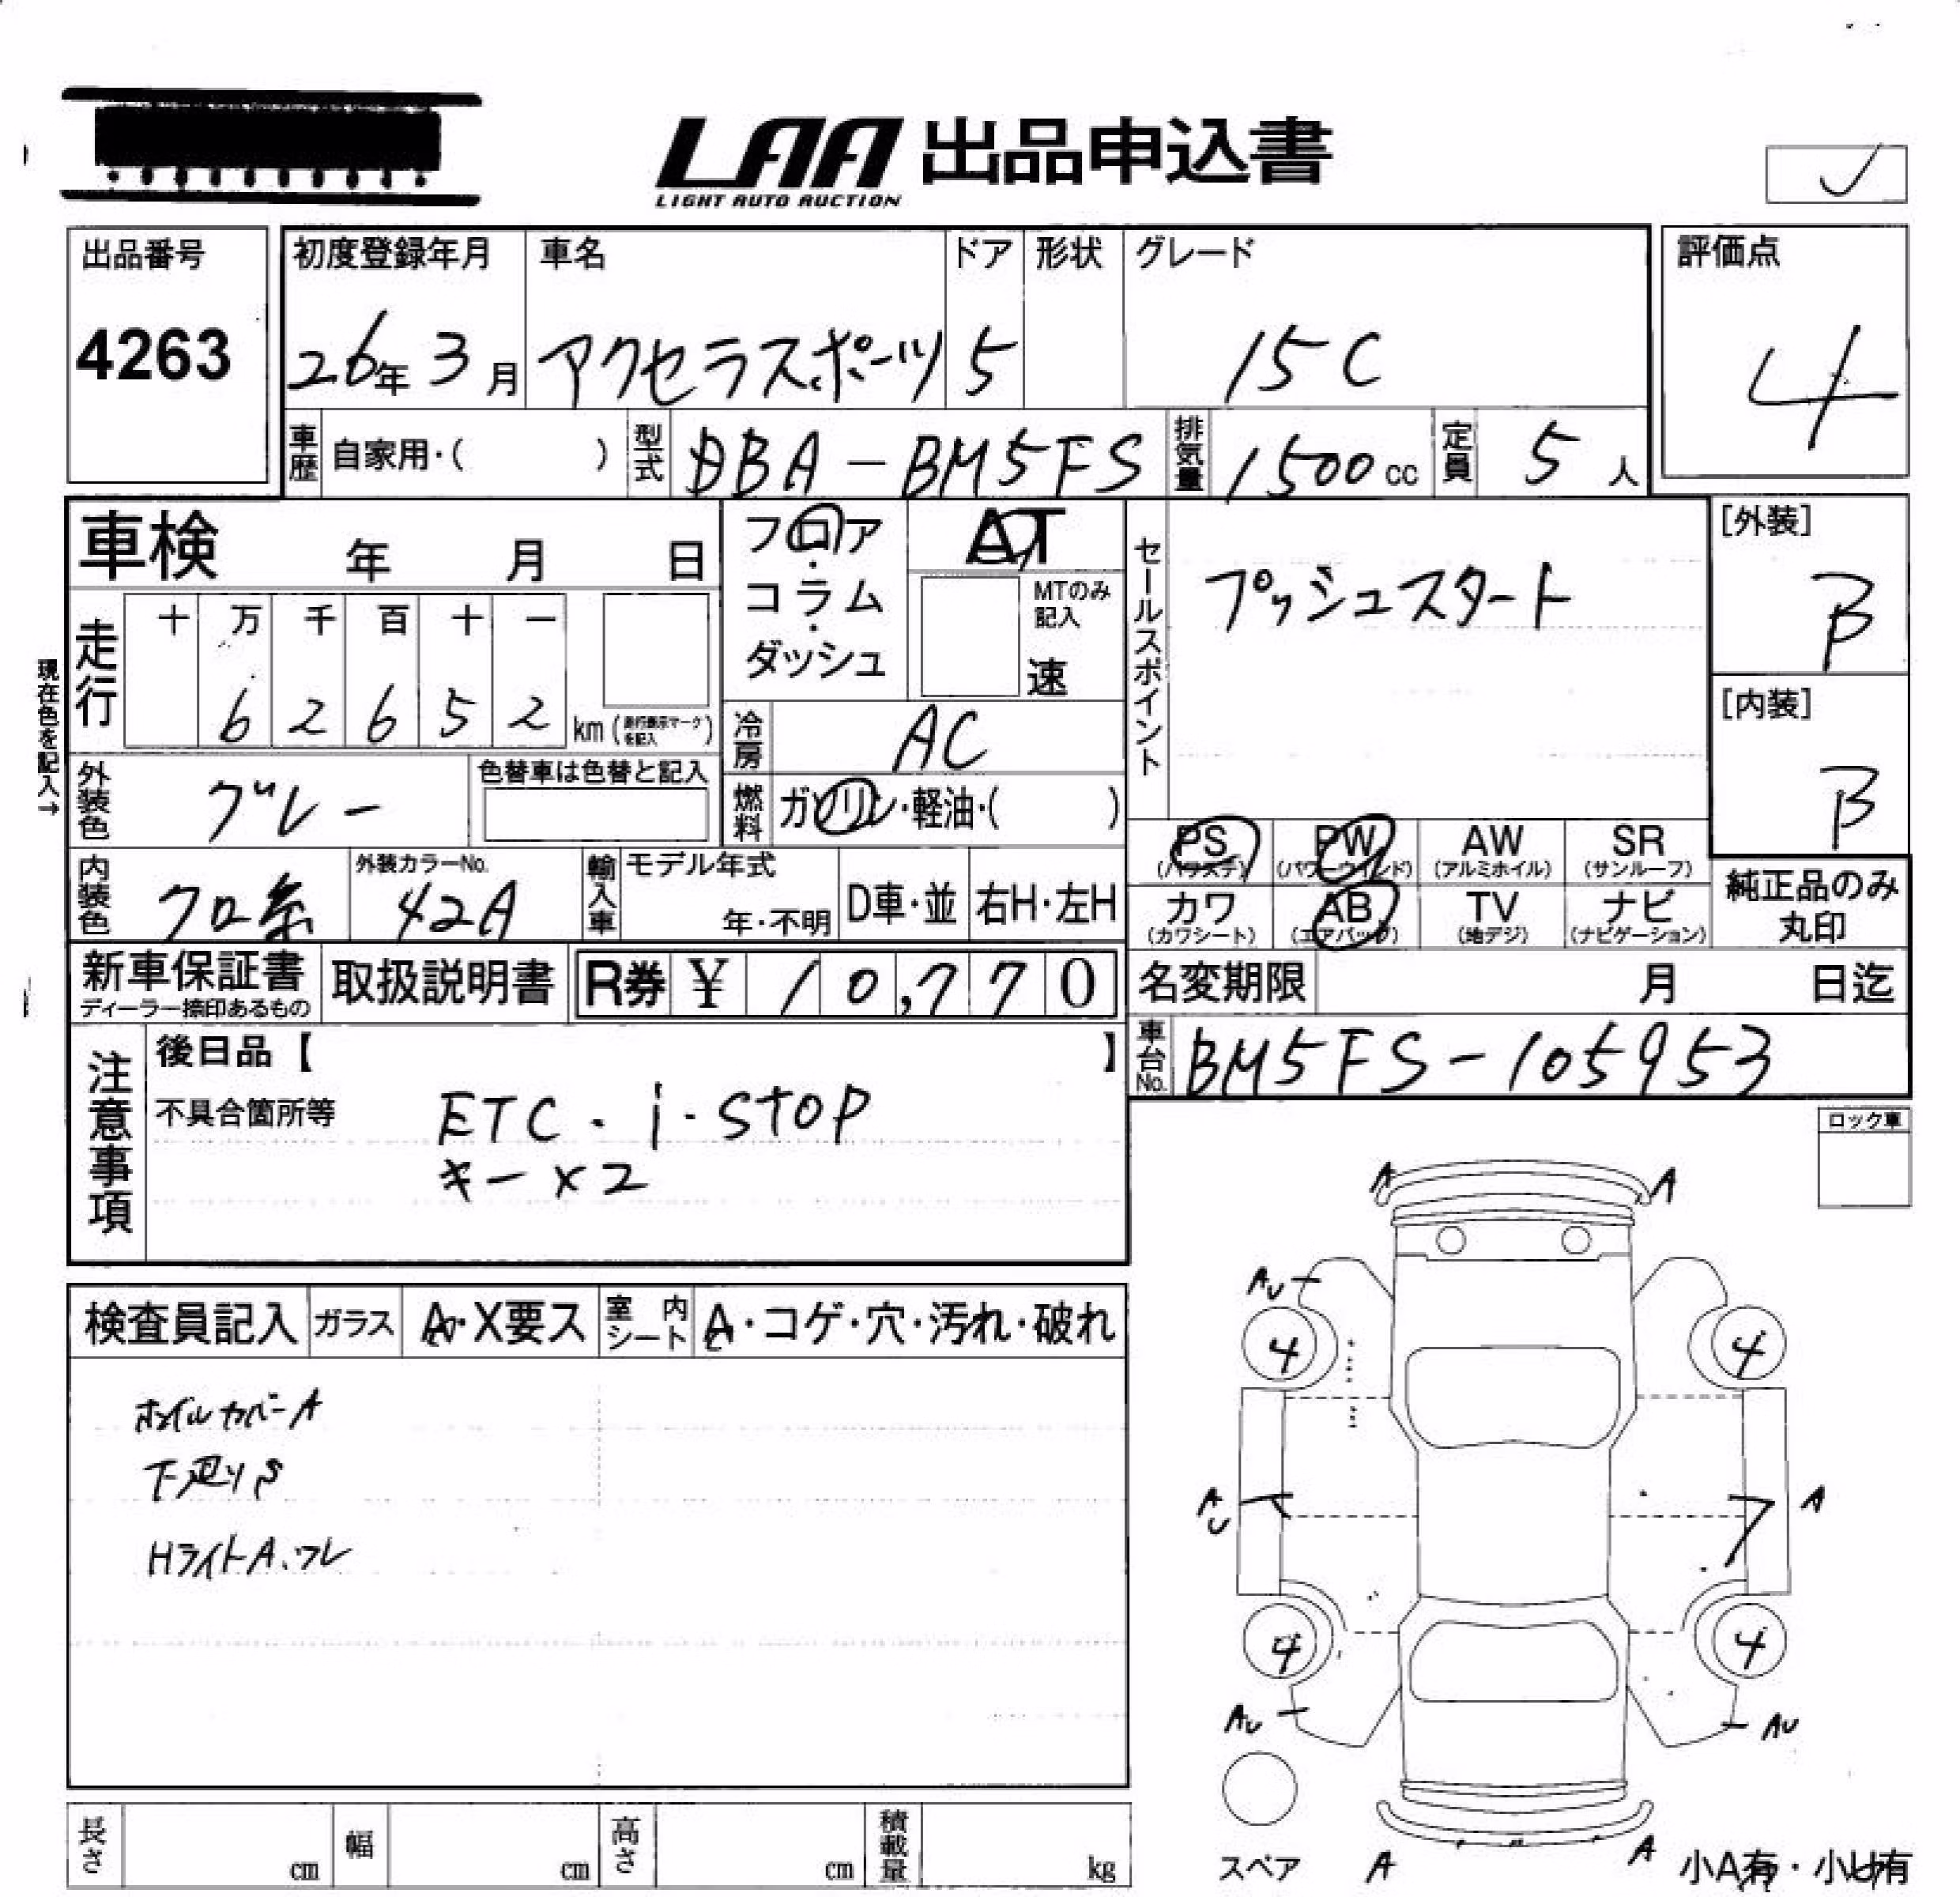 LAA 出品申込書
LIGHT AUTO AUCTION
出品番号
4263
初度登録年月
26年3月
車名
アクセラスポーツ
ドア
5
形状
グレード
15C
評価点
4
車歴 自家用・( )
型式 DBA-BM5FS
排気量 1500cc
定員 5人
車検 年 月 日
フロア・コラム・ダッシュ
AT
MTのみ記入
速
セールスポイント
プッシュスタート
[外装]
B
[内装]
B
現在色を記入→
走行
十 万 千 百 十 一
6 2 6 5 2 km (走行表示マークを記入)
冷房 AC
外装色 グレー
色替車は色替と記入
燃料 ガソリン・軽油・( )
PS (パワステ)
PW (パワーウィンド)
AW (アルミホイル)
SR (サンルーフ)
カワ (カワシート)
AB (エアバッグ)
TV (地デジ)
ナビ (ナビゲーション)
純正品のみ丸印
内装色 クロ系
外装カラーNo. 42A
輸入車
モデル年式
年・不明
D車・並
右H・左H
新車保証書
ディーラー捺印あるもの
取扱説明書
R券 ¥ 10,770
名変期限 月 日迄
車台No. BM5FS-105953
注意事項
後日品【 】
不具合箇所等
ETC・i-STOP
キー×2
ロック車
検査員記入
ガラス A・X要ス
室内シート A・コゲ・穴・汚れ・破れ
ホイルカバーA
下廻りS
HライトA、ワレ
A A
AU
4 4
AU A
4 4
AU AU
スペア
A A
小A有・小U有
長さ cm
幅 cm
高さ cm
積載量 kg